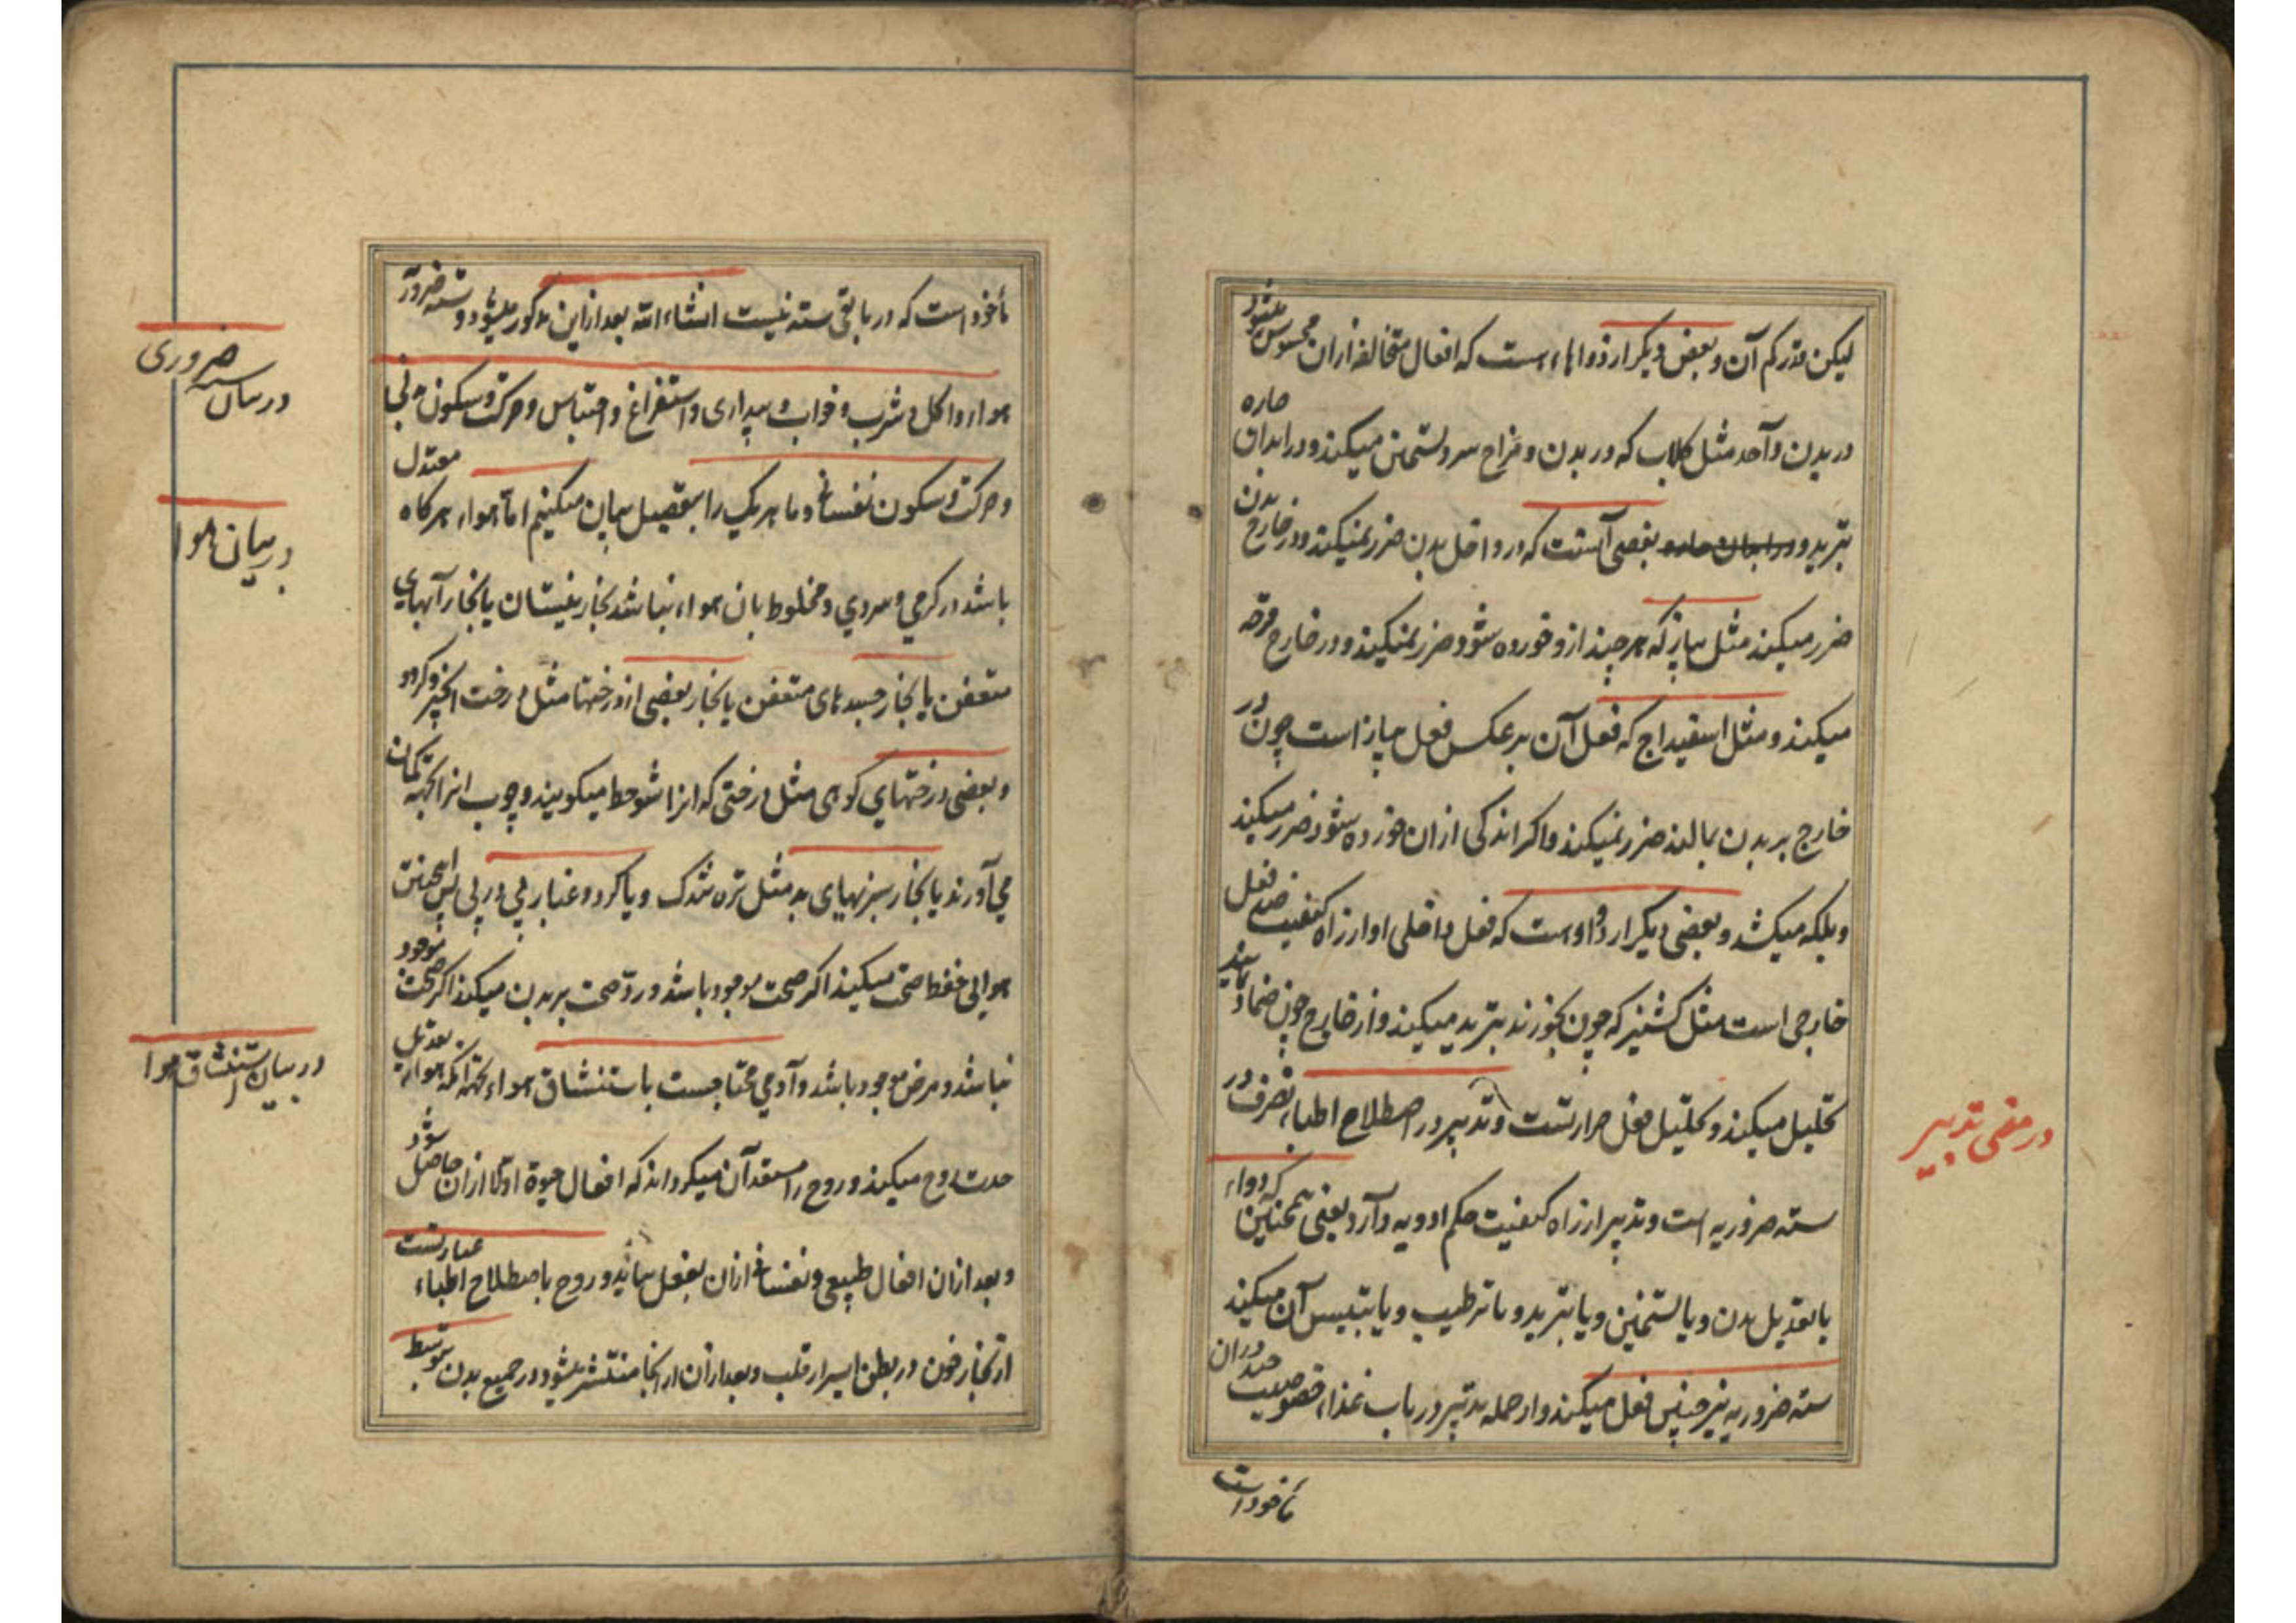 لیکن قدر کم آن و بعض دیکر از دواها است که افعال متخالفه ازان محسوس میشود
در بدن واحد مثل کلاب که در بدن و مزاج سرد تسخین میکند و در ابدان حاره
تبرید و در ابدان حاره بعضی آنست که در داخل بدن ضرر نمیکند و در خارج بدن
ضرر میکند مثل پیاز که هر چند ازو خورده شود ضرر نمیکند و در خارج قرحه
میکند و مثل اسفیداج که فعل آن بر عکس فعل پیاز است چون در
خارج بر بدن بمالند ضرر نمیکند و اکر اندکی ازان خورده شود ضرر میکند
و بلکه میکشد و بعضی دیکر از دواست که فعل داخلی او از راه کیفیت ضد فعل
خارجی است مثل کشنیز که چون بخورند تبرید میکند و از خارج چون ضماد نمایند
تحلیل میکند و تحلیل فعل حرارتست و تدبیر در اصطلاح اطباء تصرف در
سته ضروریه است و تدبیر از راه کیفیت حکم ادویه دارد یعنی همچنین که دواء
یا تعدیل بدن و یا تسخین و یا تبرید و یا ترطیب و یا تیبیس آن میکند
سته ضروریه نیز چنین فعل میکند و از جمله تدبیر در باب غذا خصوصیت چند دران
ماخوذ است
در معنی تدبیر
ماخوذ است که در باقی سته نیست انشاء الله بعد ازین مذکور میشود و سته ضروریه
هوا و اکل و شرب و خواب و بیداری و استفراغ و احتباس و حرکت و سکون بدنی
و حرکت و سکون نفسانی و ما هر یک را بتفصیل بیان میکنیم اما هواء هرکاه معتدل
باشد در کرمی و سردی و مخلوط بان هواء نباشد بخار نیستان یا بخار آبهای
متعفن یا بخار جسدهای متعفن یا بخار بعضی از درختها مثل درخت انجیر و کردو
و بعضی درختهای کوهی مثل درختی که انرا شوحط میکویند و چوب انرا بجهة کمان
می آورند یا بخار سبزیهای بد مثل تره تندک و یا کرد و غبار پی در پی پس همچنین
هوایی حفظ صحت میکند اکر صحت موجود باشد و رد صحت بر بدن میکند اکر صحت موجود
نباشد و مرض موجود باشد و آدمی محتاجست باستنشاق هواء بجهة آنکه هواء تعدیل
حدت روح میکند و روح را مستعد آن میکرداند که افعال حیوة اولا ازان حاصل شود
و بعد ازان افعال طبیعی و نفسانی ازان بفعل بیاید و روح باصطلاح اطباء عبارتست
از بخار خون در بطن ایسر از قلب و بعد ازان از انجا منتشر میشود در جمیع بدن بتوسط
در بیان سته ضروری
در بیان هوا
در بیان استنشاق هوا